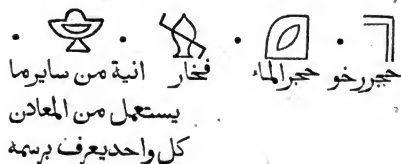 حجررخو حجرالماء فخار انية من سايرما
يستعمل من المعادن
كل واحد يعرف برسمه